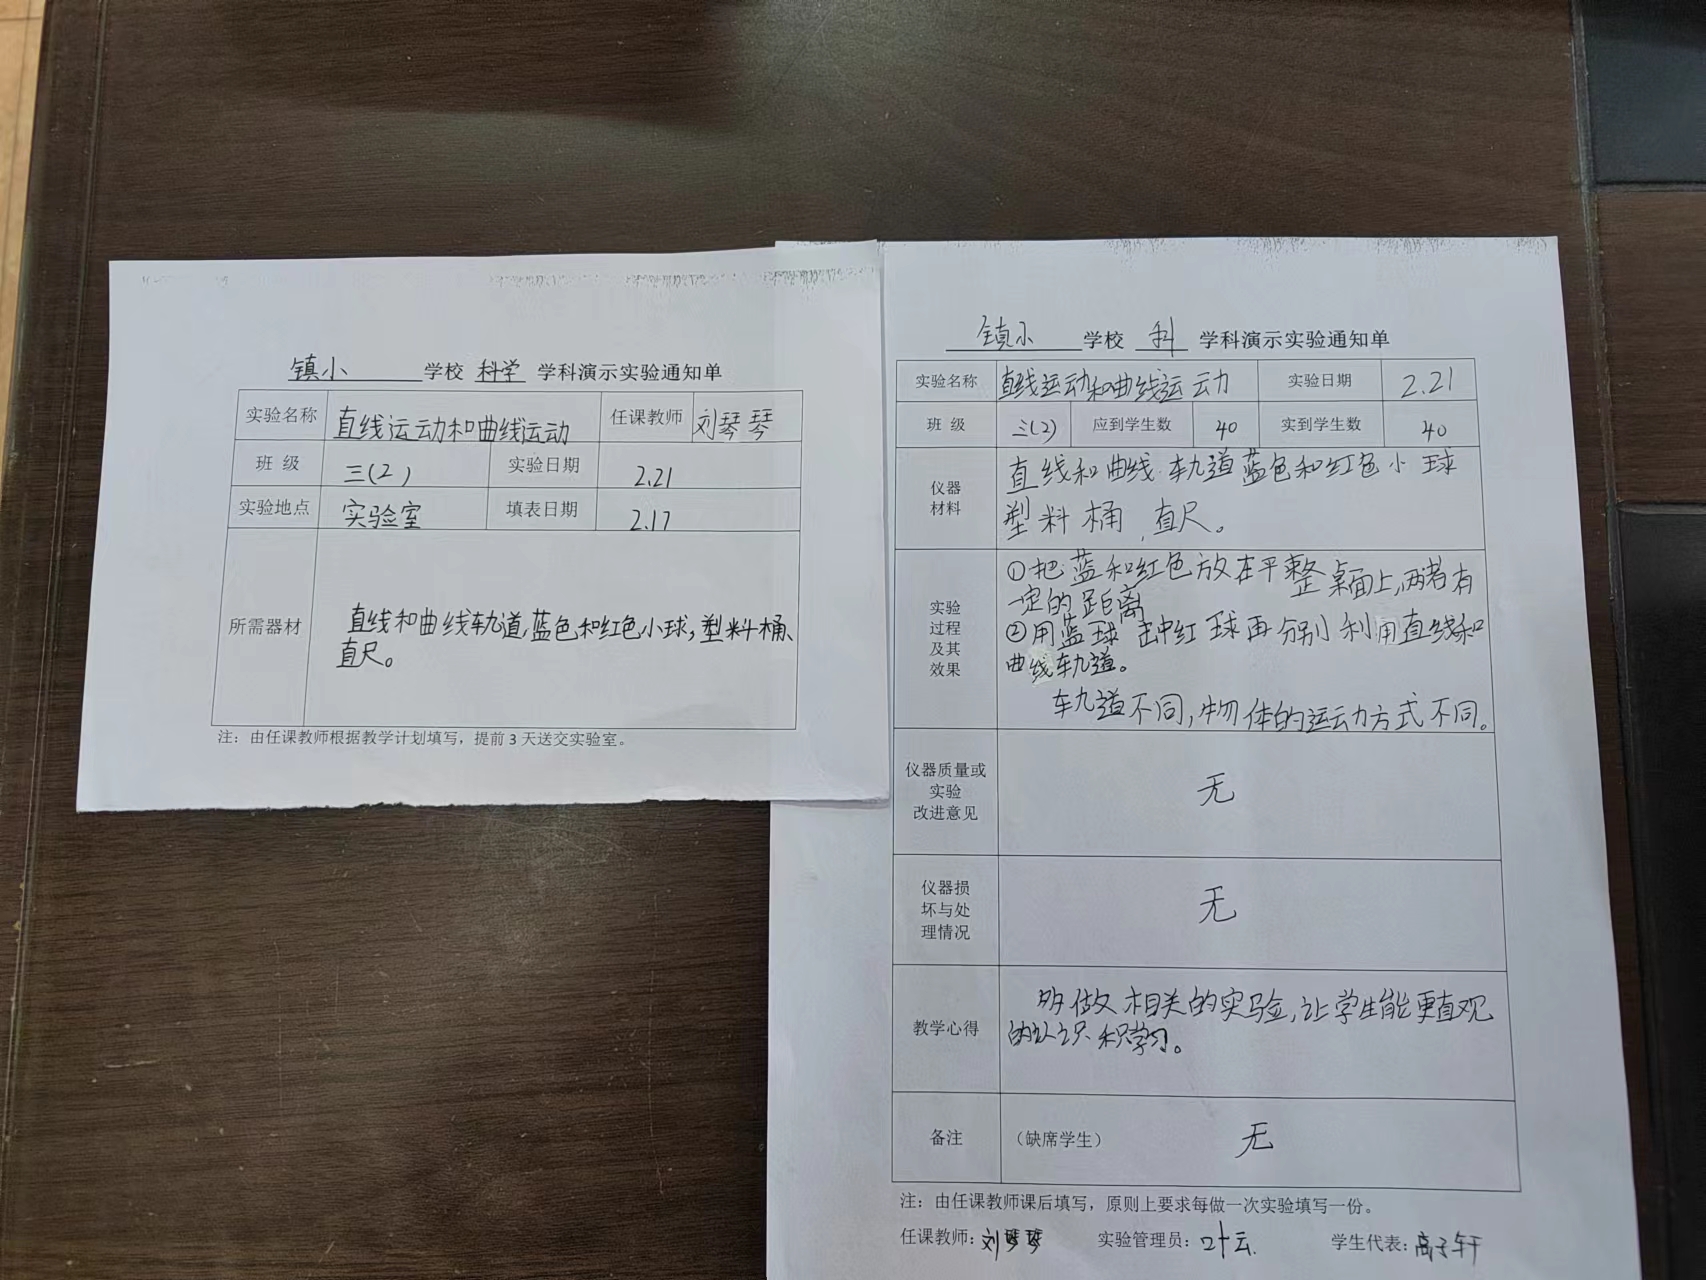 镇小 学校 科学 学科演示实验通知单
实验名称 直线运动和曲线运动 任课教师 刘琴琴
班 级 三(2) 实验日期 2.21
实验地点 实验室 填表日期 2.17
所需器材 直线和曲线轨道,蓝色和红色小球,塑料桶、
直尺。
注：由任课教师根据教学计划填写，提前3天送交实验室。
镇小 学校 科 学科演示实验通知单
实验名称 直线运动和曲线运动 实验日期 2.21
班 级 三(2) 应到学生数 40 实到学生数 40
仪器
材料
直线和曲线轨道蓝色和红色小球
塑料桶,直尺。
实验
过程
及其
效果
①把蓝和红色放在平整桌面上,两者有
一定的距离
②用蓝球击中红球再分别利用直线和
曲线轨道。
轨道不同,物体的运动方式不同。
仪器质量或
实验
改进意见
无
仪器损
坏与处
理情况
无
教学心得
多做相关的实验,让学生能更直观
的认识和学习。
备注 （缺席学生） 无
注：由任课教师课后填写，原则上要求每做一次实验填写一份。
任课教师：刘琴琴 实验管理员：叶云. 学生代表：高子轩